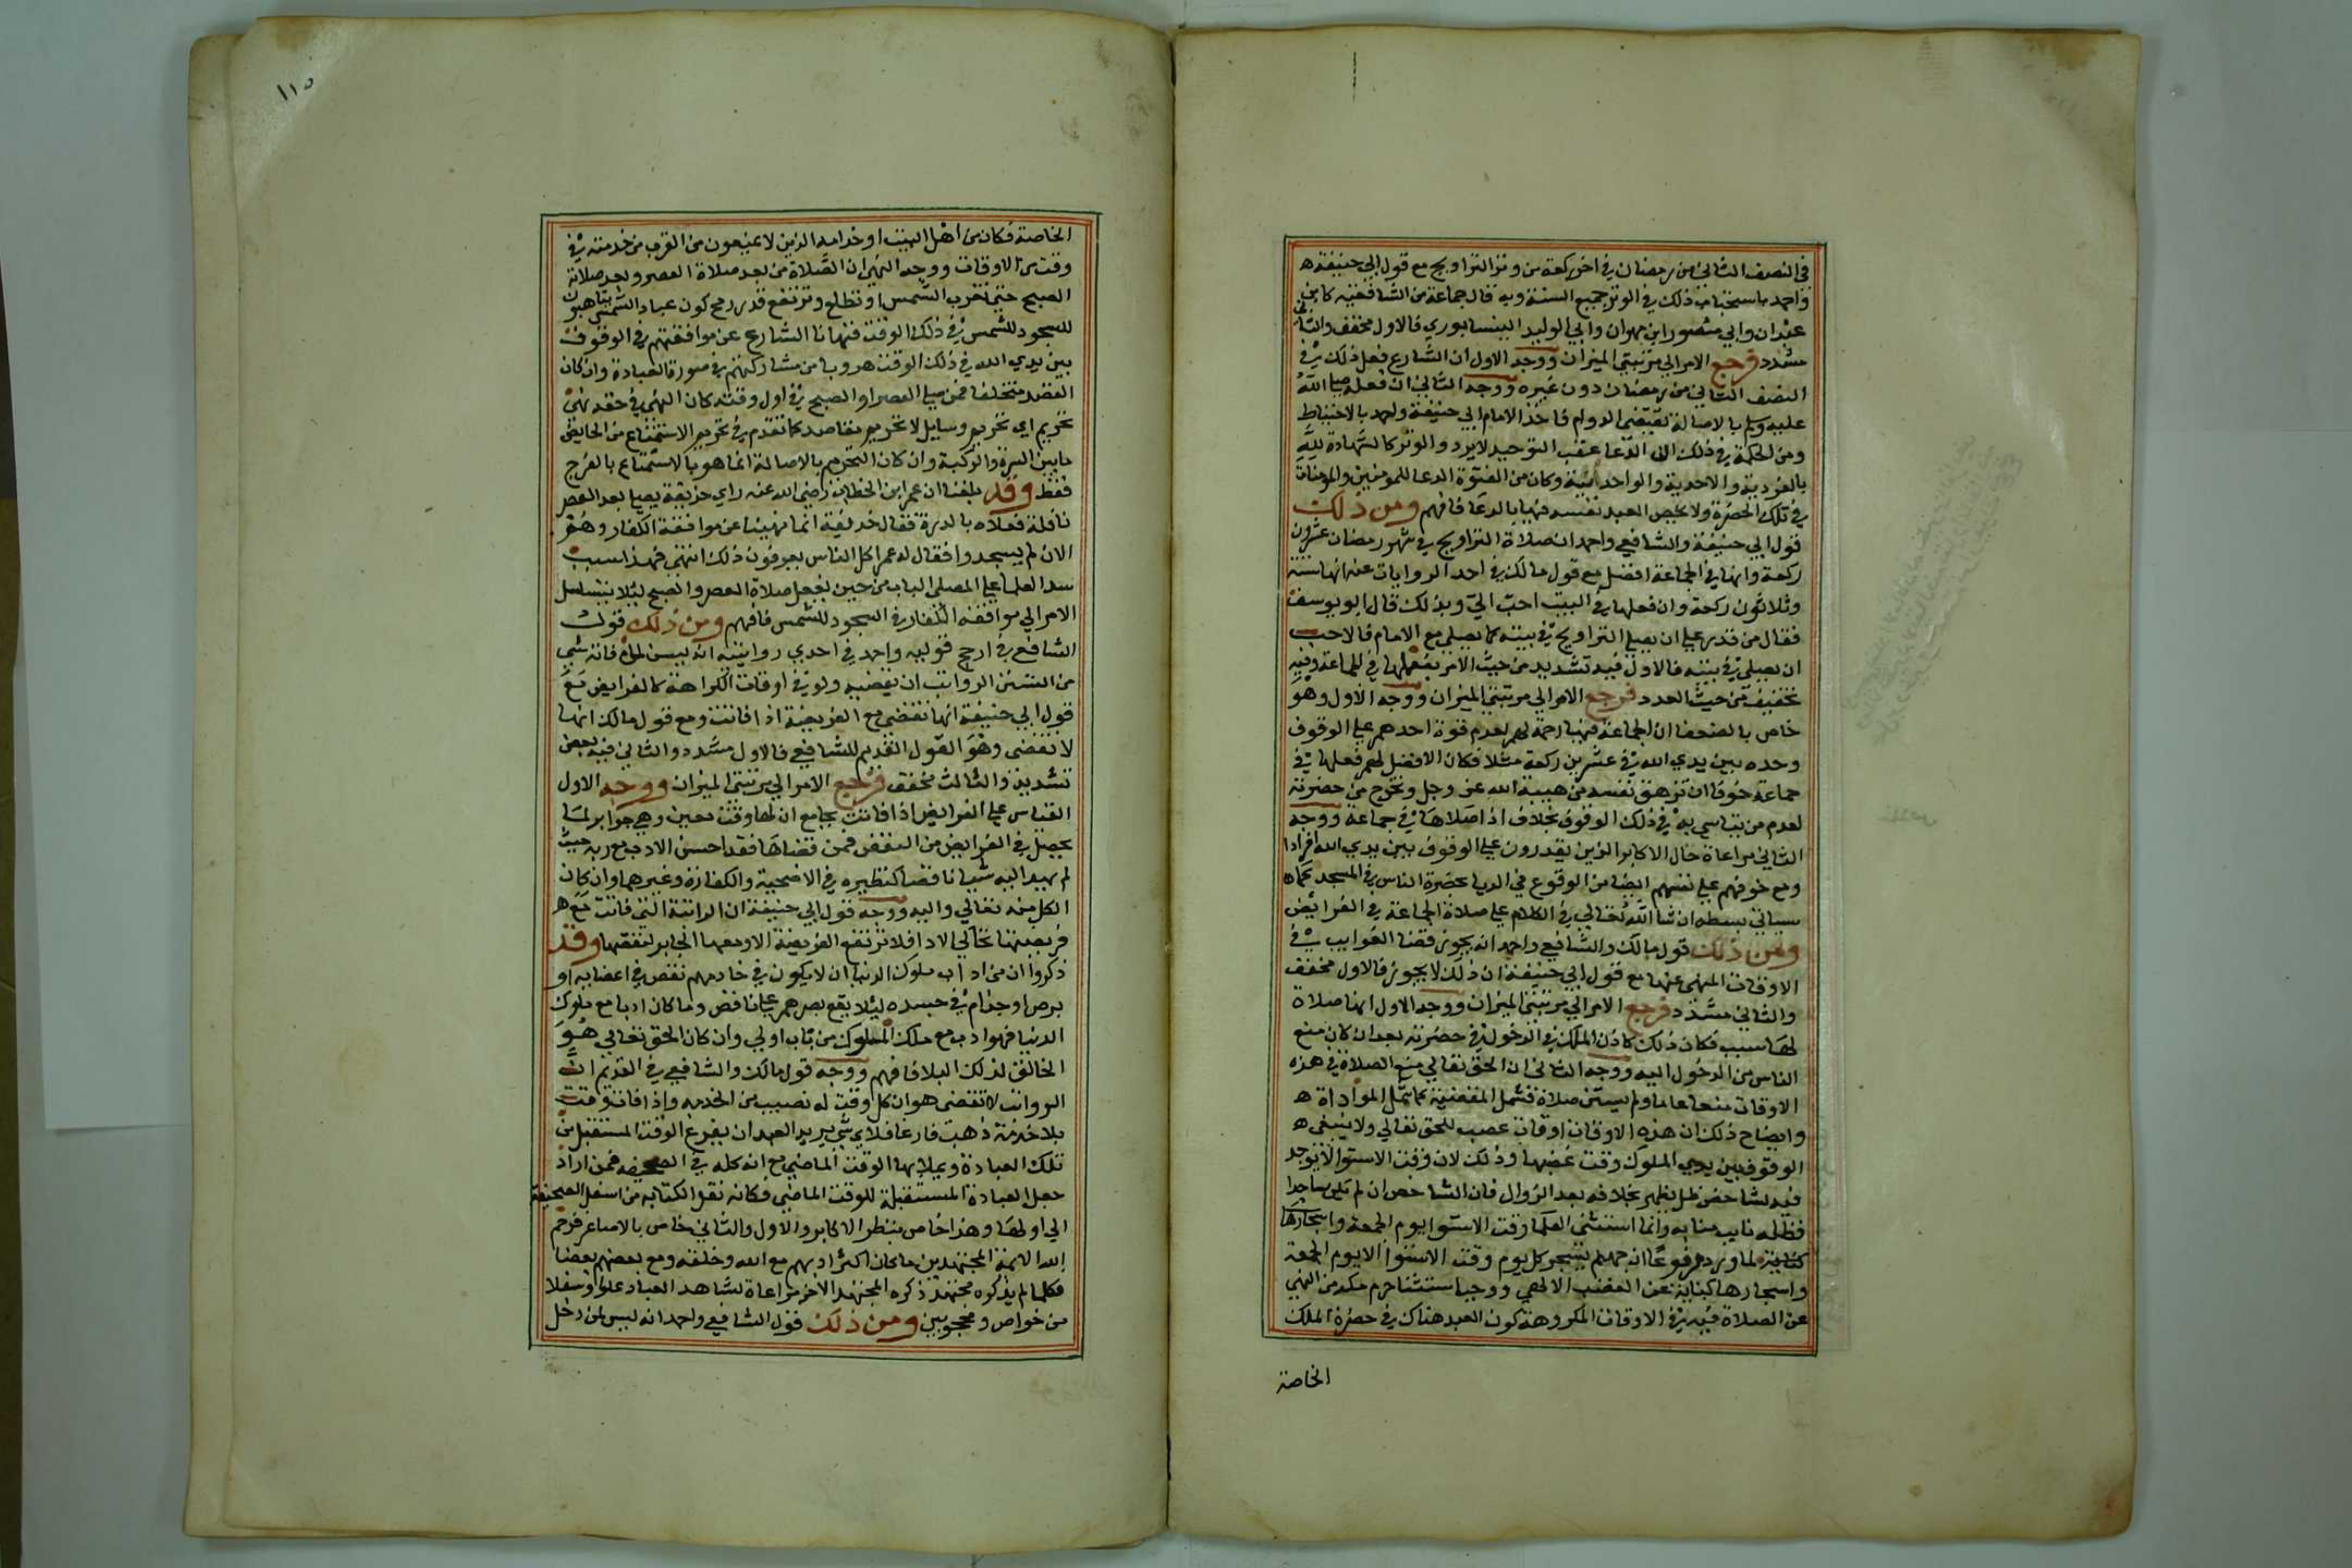 في النصف الثاني من رمضان في اخر ركعة من وتر التراويح مع قول ابي حنيفة ه
واحمد باستحباب ذلك في الوتر جميع السنة وبه قال جماعة من الشافعية كابن
عبدان وابي منصور ابن مهران وابي الوليد النيسابوري فالاول مخفف والثاني
مشدد فرجع الامر الي مرتبتي الميزان ووجه الاول ان الشارع فعل ذلك في
النصف الثاني من رمضان دون غيره ووجه الثاني ان فعله صلي الله
عليه وسلم بالاصالة تقتضي الدوام فاخذ الامام ابي حنيفة واحمد بالاحتياط
ومن الحكمة في ذلك ان الدعا عقب التوحيد لا يرد والوتر كالشهادة لله
بالفردية والاحدية والواحدانية وكان من الفتوة الدعا للمومنين والمومنات
في تلك الحضرة ولا يخص العبد نفسه فيها بالدعا فافهم ومن ذلك
قول ابي حنيفة والشافعي واحمد ان صلاة التراويح في شهر رمضان عشرون
ركعة وانها في الجماعة افضل مع قول مالك في احد الروايات عنه انها ستة
وثلاثون ركعة وان فعلها في البيت احب الي وبذلك قال ابو يوسف
فقال من قدر علي ان يصلي التراويح في بيته كما يصلي مع الامام فالاحب
ان يصلي في بيته فالاول فيه تشديد من حيث الامر بفعلها في الجماعة وفيه
تخفيف من حيث العدد فرجع الامر الي مرتبتي الميزان ووجه الاول وهو
خاص بالضعفا ان الجماعة فيها رحمة لهم لعدم قوة احدهم علي الوقوف
وحده بين يدي الله في عشرين ركعة مثلا فكان الافضل لهم فعلها في
جماعة خوفا ان تزهق نفسه من هيبة الله عز وجل وتخرج من حضرته
لعدم من يتاسي به في ذلك الوقوف بخلاف اذا صلاها في جماعة ووجه
الثاني مراعاة حال الاكابر الذين يقدرون علي الوقوف بين يدي الله افرادا
ومع خوفهم علي نفسهم ايضا من الوقوع في الريا بحضرة الناس في المسجد كما ه
سياتي بسطه ان شا الله تعالي في الكلام علي صلاة الجماعة في الفرائض
ومن ذلك قول مالك والشافعي واحمد انه يجوز قضا الفوايت في
الاوقات المنهي عنها مع قول ابي حنيفة ان ذلك لا يجوز فالاول مخفف
والثاني مشدد فرجع الامر الي مرتبتي الميزان ووجه الاول انها صلاة
لها سبب فكان ذلك كاذن الملك في الدخول في حضرته بعد ان كان منع
الناس من الدخول اليه ووجه الثاني ان الحق تعالي منع الصلاة في هذه
الاوقات منعا عاما ولم يستثن صلاة فشمل المقضية كما شمل المواداة ه
وايضاح ذلك ان هذه الاوقات اوقات غضب للحق تعالي ولا ينبغي ه
الوقوف بين يدي الملوك وقت غضبها وذلك لان وقت الاستوا لا يوجد
فيه لشاخص ظل يظهر بخلافه بعد الزوال فان الشاخص ان لم يكن ساجدا
فظله نايب منابه وانما استثني العلما وقت الاستوا يوم الجمعة واسجارها
كناية لما ورد مرفوعا ان جهنم تسجر كل يوم وقت الاستوا الا يوم الجمعة
واسجارها كناية عن الغضب الالهي ووجه استثنا حرم مكة من النهي
عن الصلاة فيه في الاوقات المكروهة كون العبد هناك في حضرة الملك
الخاصة
١١٥
الخاصة فكان من اهل البيت او خدامه الذين لا يمنعون من القرب من خدمته في
وقت من الاوقات ووجه النهي ان الصلاة من بعد صلاة العصر وبعد صلاة
الصبح حتي تغرب الشمس او تطلع وترتفع قدر رمح كون عباد الشمس يتاهبون
للسجود للشمس في ذلك الوقت فنهانا الشارع عن موافقتهم في الوقوف
بين يدي الله في ذلك الوقت هروبا من مشاركتهم في صورة العبادة وان كان
القصد مختلفا فمن صلي العصر او الصبح في اول وقته كان النهي في حقه نهي
تحريم اي تحريم وسايل لا تحريم مقاصد كما تقدم في تحريم الاستمتاع من الحايض
ما بين السرة والركبة وان كان التحريم بالاصالة انما هو بالاستمتاع بالفرج
فقط وقد بلغنا ان عمر ابن الخطاب رضي الله عنه راي حذيفة يصلي بعد العصر
نافلة فعلاه بالدرة فقال حذيفة انما نهينا عن موافقة الكفار وهم
الان لم يسجدوا فقال له عمر اكل الناس يعرفون ذلك انتهي فهذا سبب
سد العلما علي المصلي الباب من حين يفعل صلاة العصر والصبح ليلا يتسلسل
الامر الي موافقة الكفار في السجود للشمس فافهم ومن ذلك قول
الشافعي في ارجح قوليه واحمد في احدي روايتيه انه يسن لمن فاته شي
من السنن الرواتب ان يقضيه ولو في اوقات الكراهة كالفرايض مع
قول ابي حنيفة انها تقضي مع الفريضة اذا فاتت ومع قول مالك انها
لا تقضي وهو القول القديم للشافعي فالاول مشدد والثاني فيه بعض
تشديد والثالث مخفف فرجع الامر الي مرتبتي الميزان ووجه الاول
القياس علي الفرايض اذا فاتت بجامع ان لها وقت معين وهي جوابر لما
يحصل في الفرايض من النقص فمن قضاها فقد احسن الادب مع ربه حيث
لم يهد اليه شيا ناقصا كنظيره في الاضحية والكفارة وغيرهما وان كان
الكل منه تعالي واليه ووجه قول ابي حنيفة ان الراتبة التي فاتت مع ه
فريضتها تحاكي الادا فلا ترتفع الفريضة الا ومعها الجابر لنقصها وقد
ذكروا ان من اداب ملوك الدنيا ان لا يكون في خادمهم نقص في اعضايه او
برص او جذام في جسده ليلا يقع بصرهم علي ناقص وما كان ادبا مع ملوك
الدنيا فهو ادب مع ملك الملوك من باب اولي وان كان الحق تعالي هو
الخالق لذلك البلا فافهم ووجه قول مالك والشافعي في القديم ان
الرواتب لا تقضي هو ان كل وقت له نصيب من الخدمة واذا فات وقت
بلا خدمة ذهب فارغا فلاي شي يريد العبد ان يفرغ الوقت المستقبل من
تلك العبادة ويملا بها الوقت الماضي مع انه كله في الصحيفة فمن اراد
جعل العبادة المستقبلة للوقت الماضي فكانه نقل الكتابة من اسفل الصحيفة
الي اولها وهذا خاص بنظر الاكابر والاول والثاني خاص بالاصاغر فرحم
الله الائمة المجتهدين ما كان اكثر ادبهم مع الله وخلقه ومع بعضهم بعضا
فكلما لم يذكره مجتهد ذكره المجتهد الاخر مراعاة لمشاهد العباد علوا وسفلا
من خواص ومحجوبين ومن ذلك قول الشافعي واحمد انه ليس لمن دخل